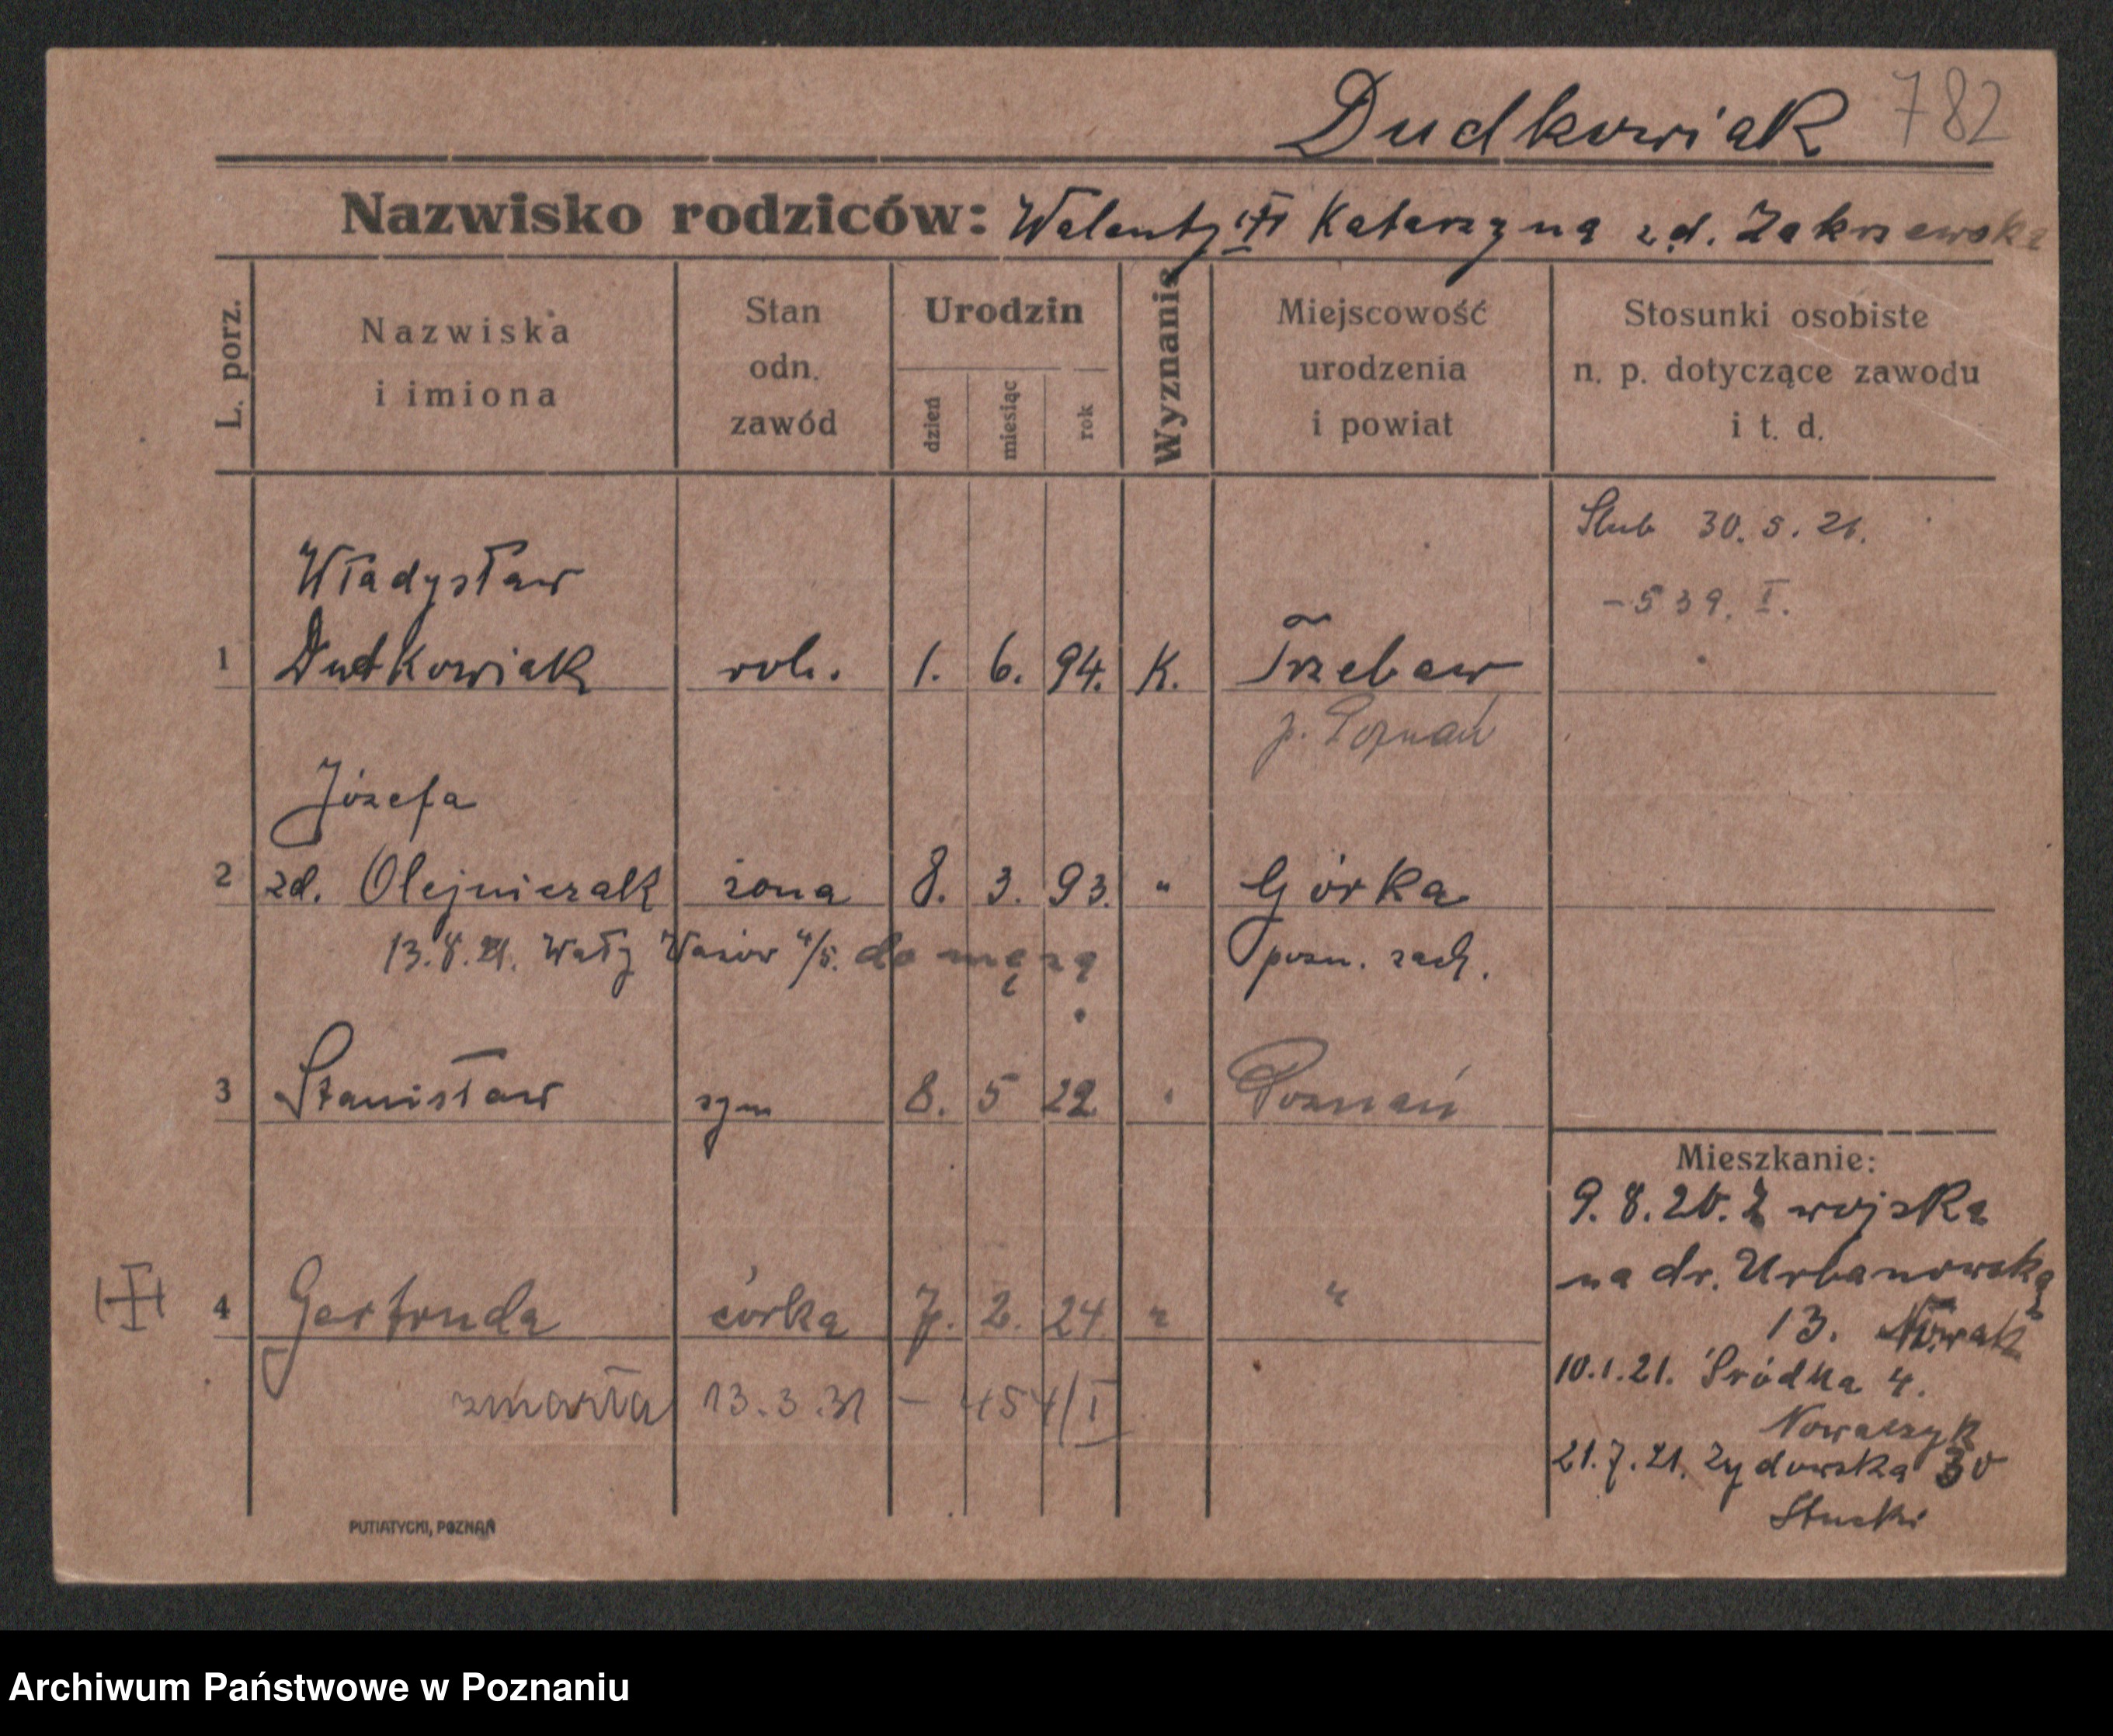 Dudkowiak 782
Nazwisko rodziców: Walenty i Katarzyna zd. Zakrzewska
L. porz.
Nazwiska
i imiona
Stan
odn.
zawód
Urodzin
dzień
miesiąc
rok
Wyznanie
Miejscowość
urodzenia
i powiat
Stosunki osobiste
n. p. dotyczące zawodu
i t. d.
Ślub 30. 5. 21.
- 539. I.
Władysław
1 Dudkowiak rob. 1. 6. 94. K. Trzebaw
p. Poznań
Józefa
2 zd. Olejniczak żona 8. 3. 93. " Górka
13.8.21. Wały Wazów 4/5. do męża
pozn. zach.
3 Stanisław syn 8. 5 22 " Poznań
4 Gertruda córka 7. 2. 24 " "
zmarła 13.3.31 - 454/I
Mieszkanie:
9. 8. 20. z wojska
na dr. Urbanowską
13. Nowak
10.1.21. Śródka 4.
Nowaczyk
21.7.21. Żydowska 30
PUTIATYCKI, POZNAŃ
Archiwum Państwowe w Poznaniu